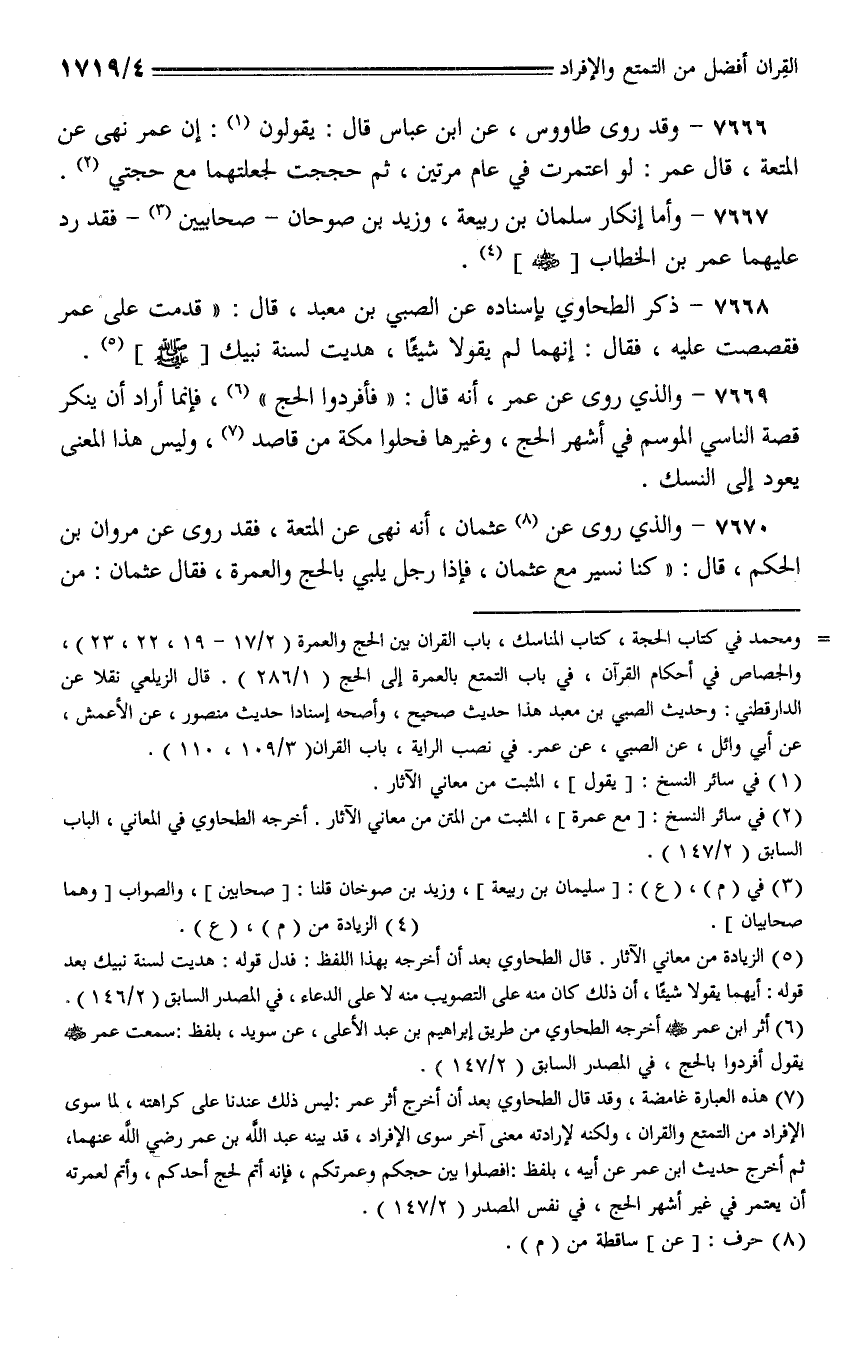 القِران أفضل من التمتع والإفراد ١٧١٩/٤
٧٦٦٦ - وقد روى طاووس ، عن ابن عباس قال : يقولون (١) : إن عمر نهى عن
المتعة ، قال عمر : لو اعتمرت في عام مرتين ، ثم حججت لجعلتهما مع حجتي (٢) .
٧٦٦٧ - وأما إنكار سلمان بن ربيعة ، وزيد بن صوحان - صحابيين (٣) - فقد رد
عليهما عمر بن الخطاب [ ﷺ ] (٤) .
٧٦٦٨ - ذكر الطحاوي بإسناده عن الصبي بن معبد ، قال : « قدمت على عمر
فقصصت عليه ، فقال : إنهما لم يقولا شيئًا ، هديت لسنة نبيك [ ﷺ ] (٥) .
٧٦٦٩ - والذي روى عن عمر ، أنه قال : « فأفردوا الحج » (٦) ، فإنما أراد أن ينكر
قصة الناسي الموسم في أشهر الحج ، وغيرها فحلوا مكة من قاصد (٧) ، وليس هذا المعنى
يعود إلى النسك .
٧٦٧٠ - والذي روى عن (٨) عثمان ، أنه نهى عن المتعة ، فقد روى عن مروان بن
الحكم ، قال : « كنا نسير مع عثمان ، فإذا رجل يلبي بالحج والعمرة ، فقال عثمان : من
= ومحمد في كتاب الحجة ، كتاب المناسك ، باب القران بين الحج والعمرة ( ١٧/٢ - ١٩ ، ٢٢ ، ٢٣ ) ،
والجصاص في أحكام القرآن ، في باب التمتع بالعمرة إلى الحج ( ٢٨٦/١ ) . قال الزيلعي نقلا عن
الدارقطني : وحديث الصبي بن معبد هذا حديث صحيح ، وأصحه إسنادا حديث منصور ، عن الأعمش ،
عن أبي وائل ، عن الصبي ، عن عمر. في نصب الراية ، باب القران( ١٠٩/٣ ، ١١٠ ) .
(١) في سائر النسخ : [ يقول ] ، المثبت من معاني الآثار .
(٢) في سائر النسخ : [ مع عمرة ] ، المثبت من المتن من معاني الآثار . أخرجه الطحاوي في المعاني ، الباب
السابق ( ١٤٧/٢ ) .
(٣) في ( م ) ، ( ع ) : [ سليمان بن ربيعة ] ، وزيد بن صوخان قلنا : [ صحابين ] ، والصواب [ وهما
صحابيان ] . (٤) الزيادة من ( م ) ، ( ع ) .
(٥) الزيادة من معاني الآثار . قال الطحاوي بعد أن أخرجه بهذا اللفظ : فدل قوله : هديت لسنة نبيك بعد
قوله : أيهما يقولا شيئًا ، أن ذلك كان منه على التصويب منه لا على الدعاء ، في المصدر السابق (١٤٦/٢) .
(٦) أثر ابن عمر أخرجه الطحاوي من طريق إبراهيم بن عبد الأعلى ، عن سويد ، بلفظ :سمعت عمر
يقول أفردوا بالحج ، في المصدر السابق ( ١٤٧/٢ ) .
(٧) هذه العبارة غامضة ، وقد قال الطحاوي بعد أن أخرج أثر عمر :ليس ذلك عندنا على كراهته ، لما سوى
الإفراد من التمتع والقران ، ولكنه لإرادته معنى آخر سوى الإفراد ، قد بينه عبد اللَّه بن عمر رضي اللَّه عنهما،
ثم أخرج حديث ابن عمر عن أبيه ، بلفظ :افصلوا بين حجكم وعمرتكم ، فإنه أتم لحج أحدكم ، وأتم لعمرته
أن يعتمر في غير أشهر الحج ، في نفس المصدر ( ١٤٧/٢ ) .
(٨) حرف : [ عن ] ساقطة من ( م ) .